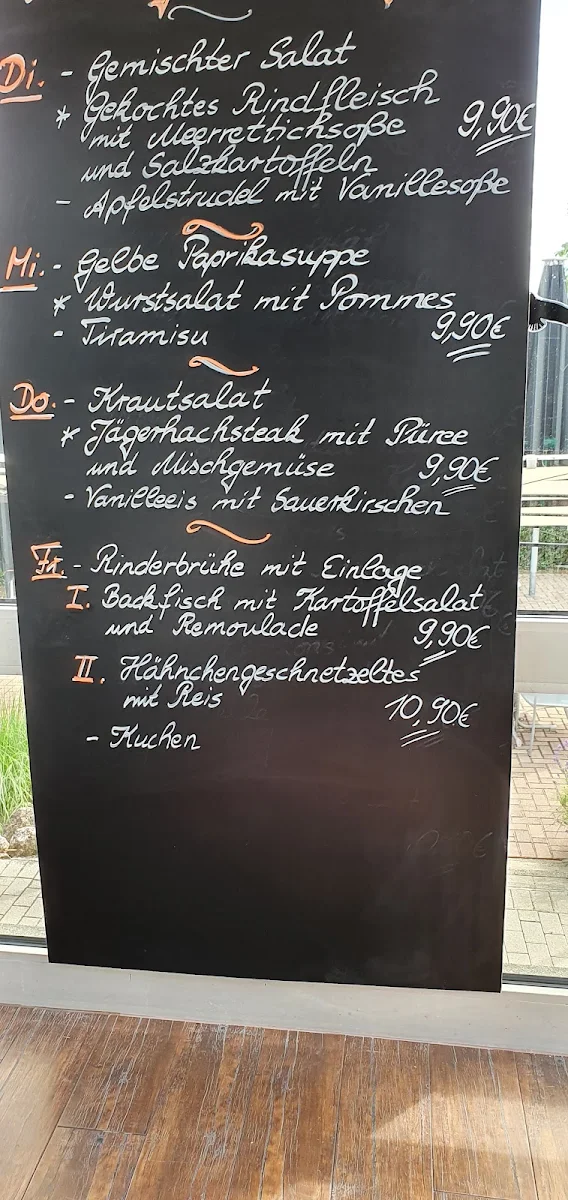 Di. - Gemischter Salat
* Gekochtes Rindfleisch
mit Meerrettichsoße 9,90€
und Salzkartoffeln
- Apfelstrudel mit Vanillesoße
Mi. - Gelbe Paprikasuppe
* Wurstsalat mit Pommes
- Tiramisu 9,90€
Do. - Krautsalat
* Jägerhacksteak mit Püree
und Mischgemüse 9,90€
- Vanilleeis mit Sauerkirschen
Fr. - Rinderbrühe mit Einlage
I. Backfisch mit Kartoffelsalat
und Remoulade 9,90€
II. Hähnchengeschnetzeltes
mit Reis 10,90€
- Kuchen